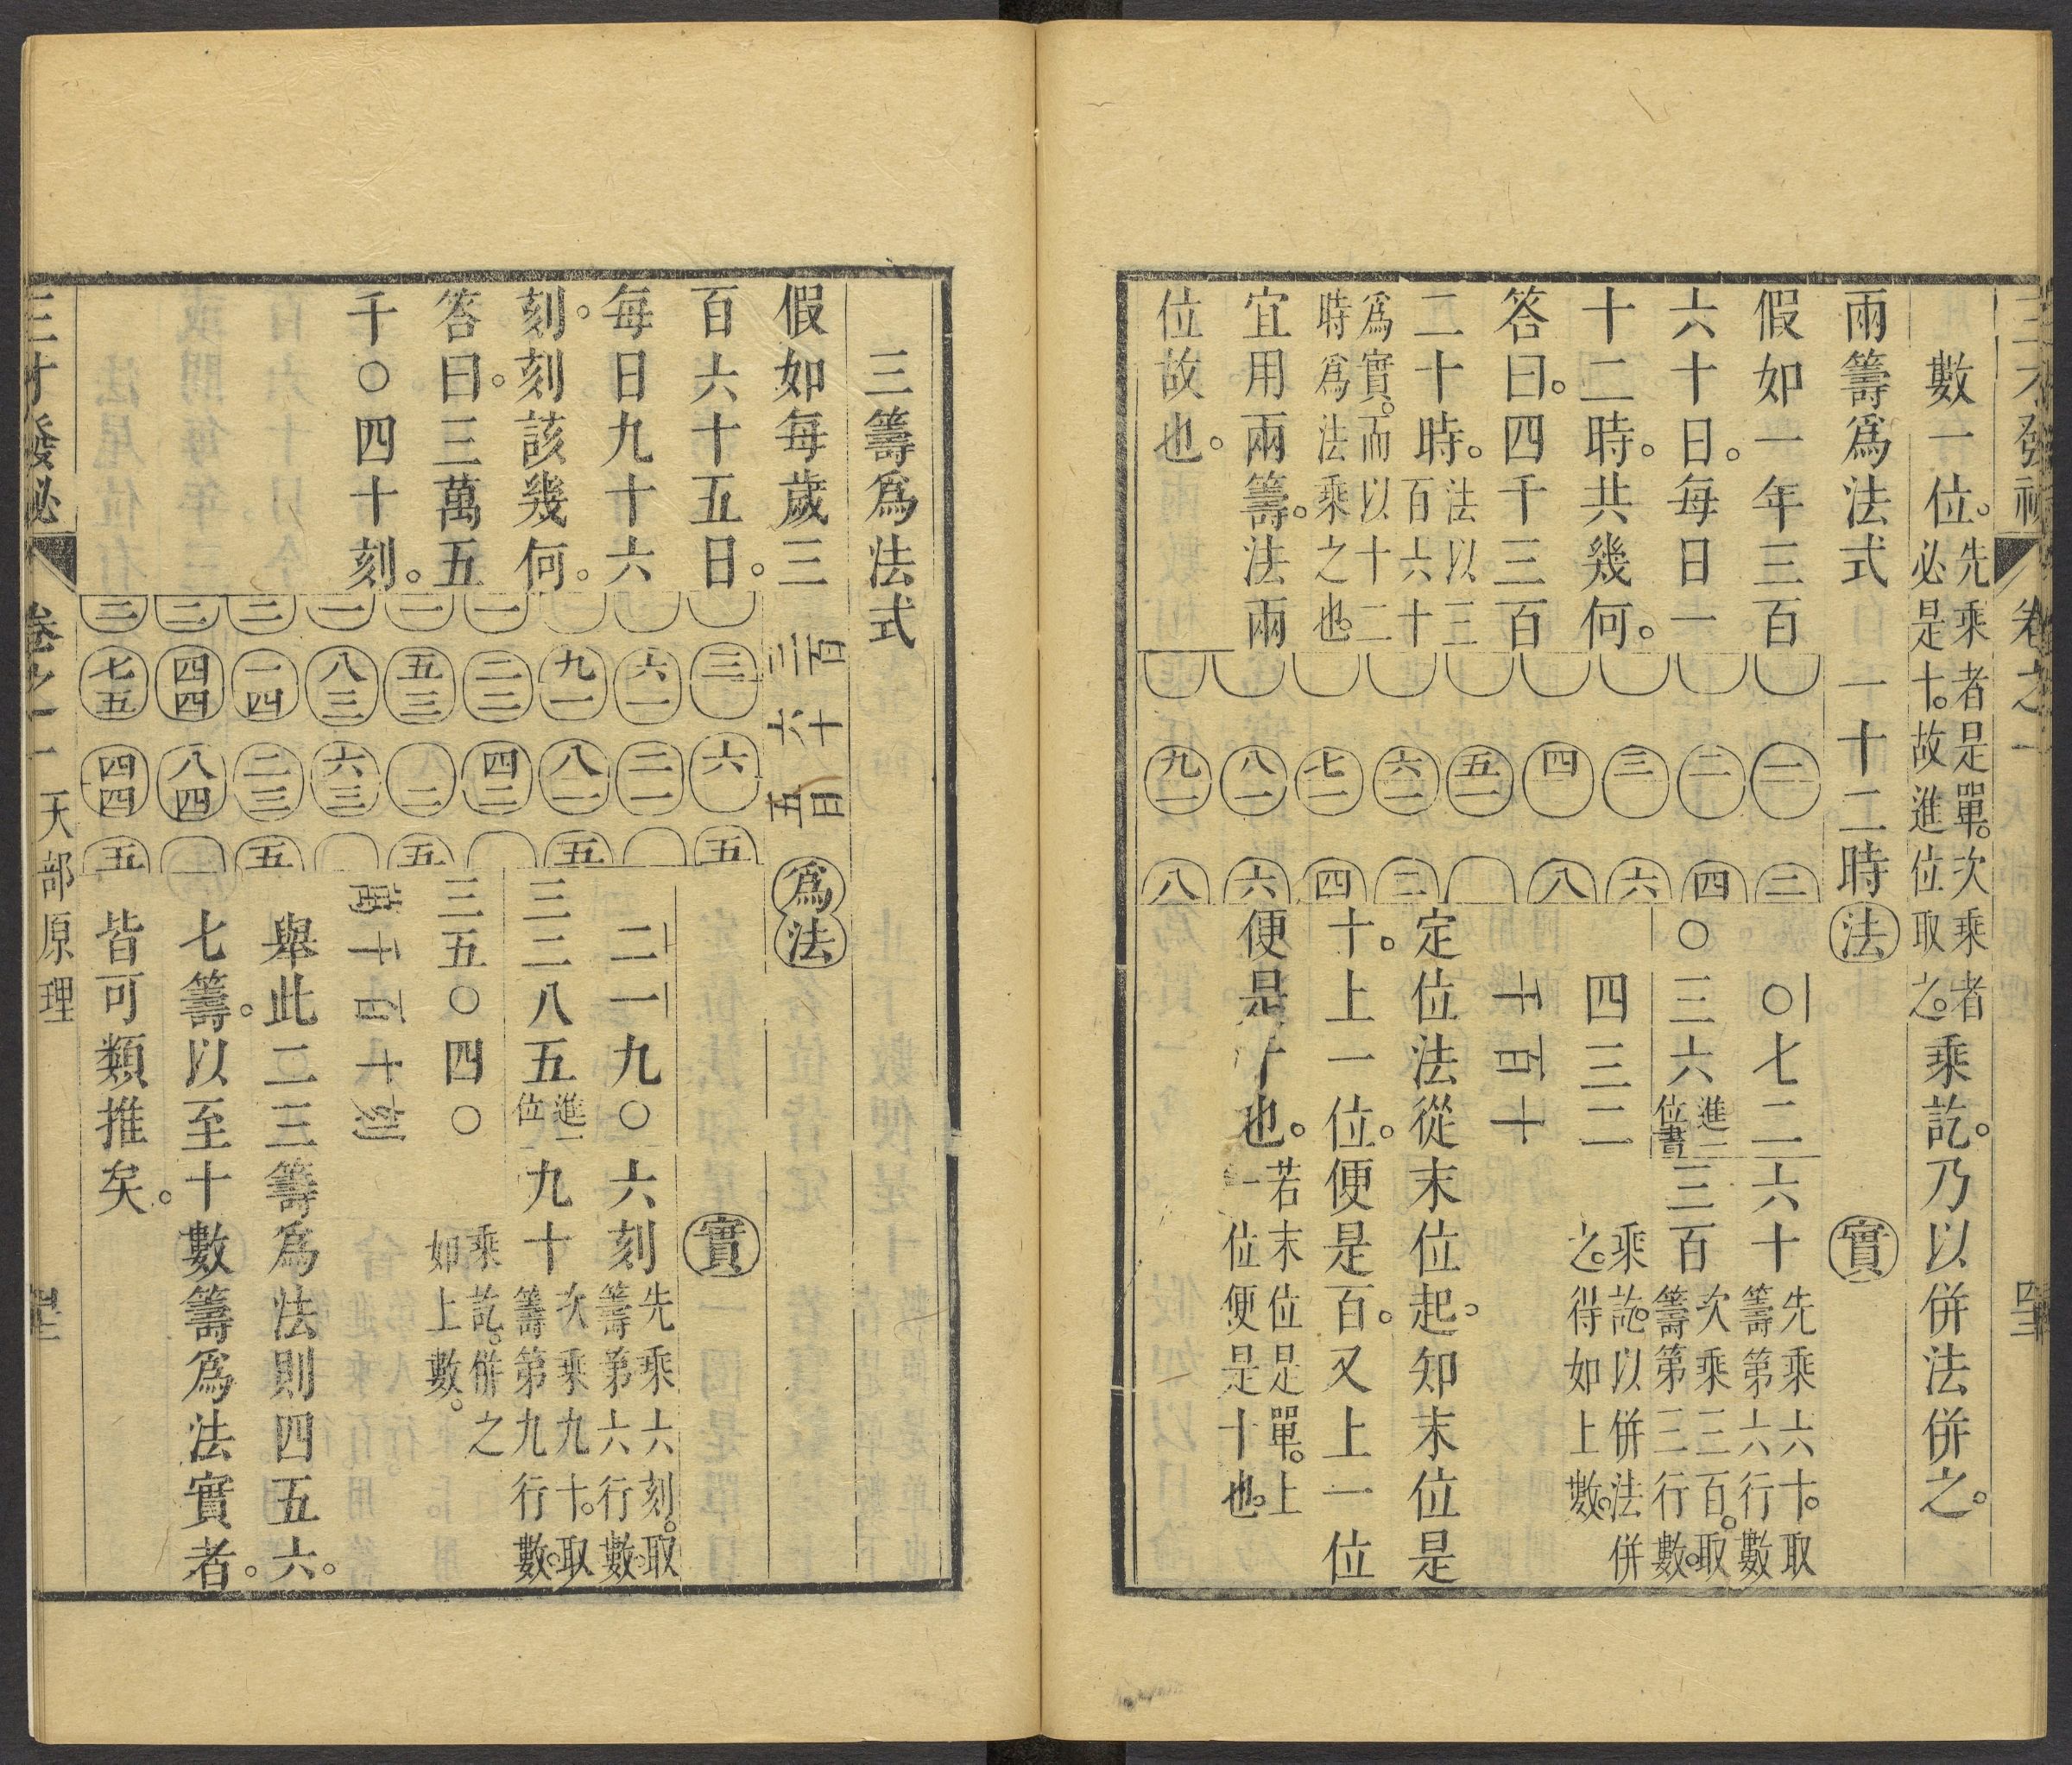 三才發祕
卷之一
數一位。先乘者是單。次乘者必是十。故進位取之。乘訖。乃以併法併之。
兩籌爲法式
一十二時法
實
假如一年三百
六十日。每日一
十二時。共幾何。
答曰。四千三百
二十時。法以三百六十
爲實。而以十二時爲法乘之也。
宜用兩籌。法兩
位故也。
一 二
二 四
三 六
四 八
五一
六一 二
七一 四
八一 六
九一 八
〇七二六十先乘六十。取籌第六行數
〇三六進一位書三百次乘三百。取籌第三行數。
四三二乘訖。以併法併之。得如上數。
千百十
定位法從末位起。知末位是
十。上一位。便是百。又上一位
便是千也。若末位是單。上一位便是十也。
三籌爲法式
三百六十五日爲法
實
假如每歲三
百六十五日。
每日九十六
刻。刻刻該幾何。
答曰。三萬五
千〇四十刻。
三 六 五
六一 二一
九一 八一 五
一 二二 四二
一 五三 八二 五
一 八三 六三
二 一四 二三 五
二 四四 八四
三 七五 四四 五
二一九〇六刻先乘六刻。取籌第六行數
三二八五進一位九十次乘九十。取籌第九行數。
三五〇四〇乘訖。併之如上數。
萬千百十刻
舉此二三籌爲法則四五六。
七籌。以至十數籌爲法實者。
皆可類推矣。
三才發祕
卷之一
天部原理